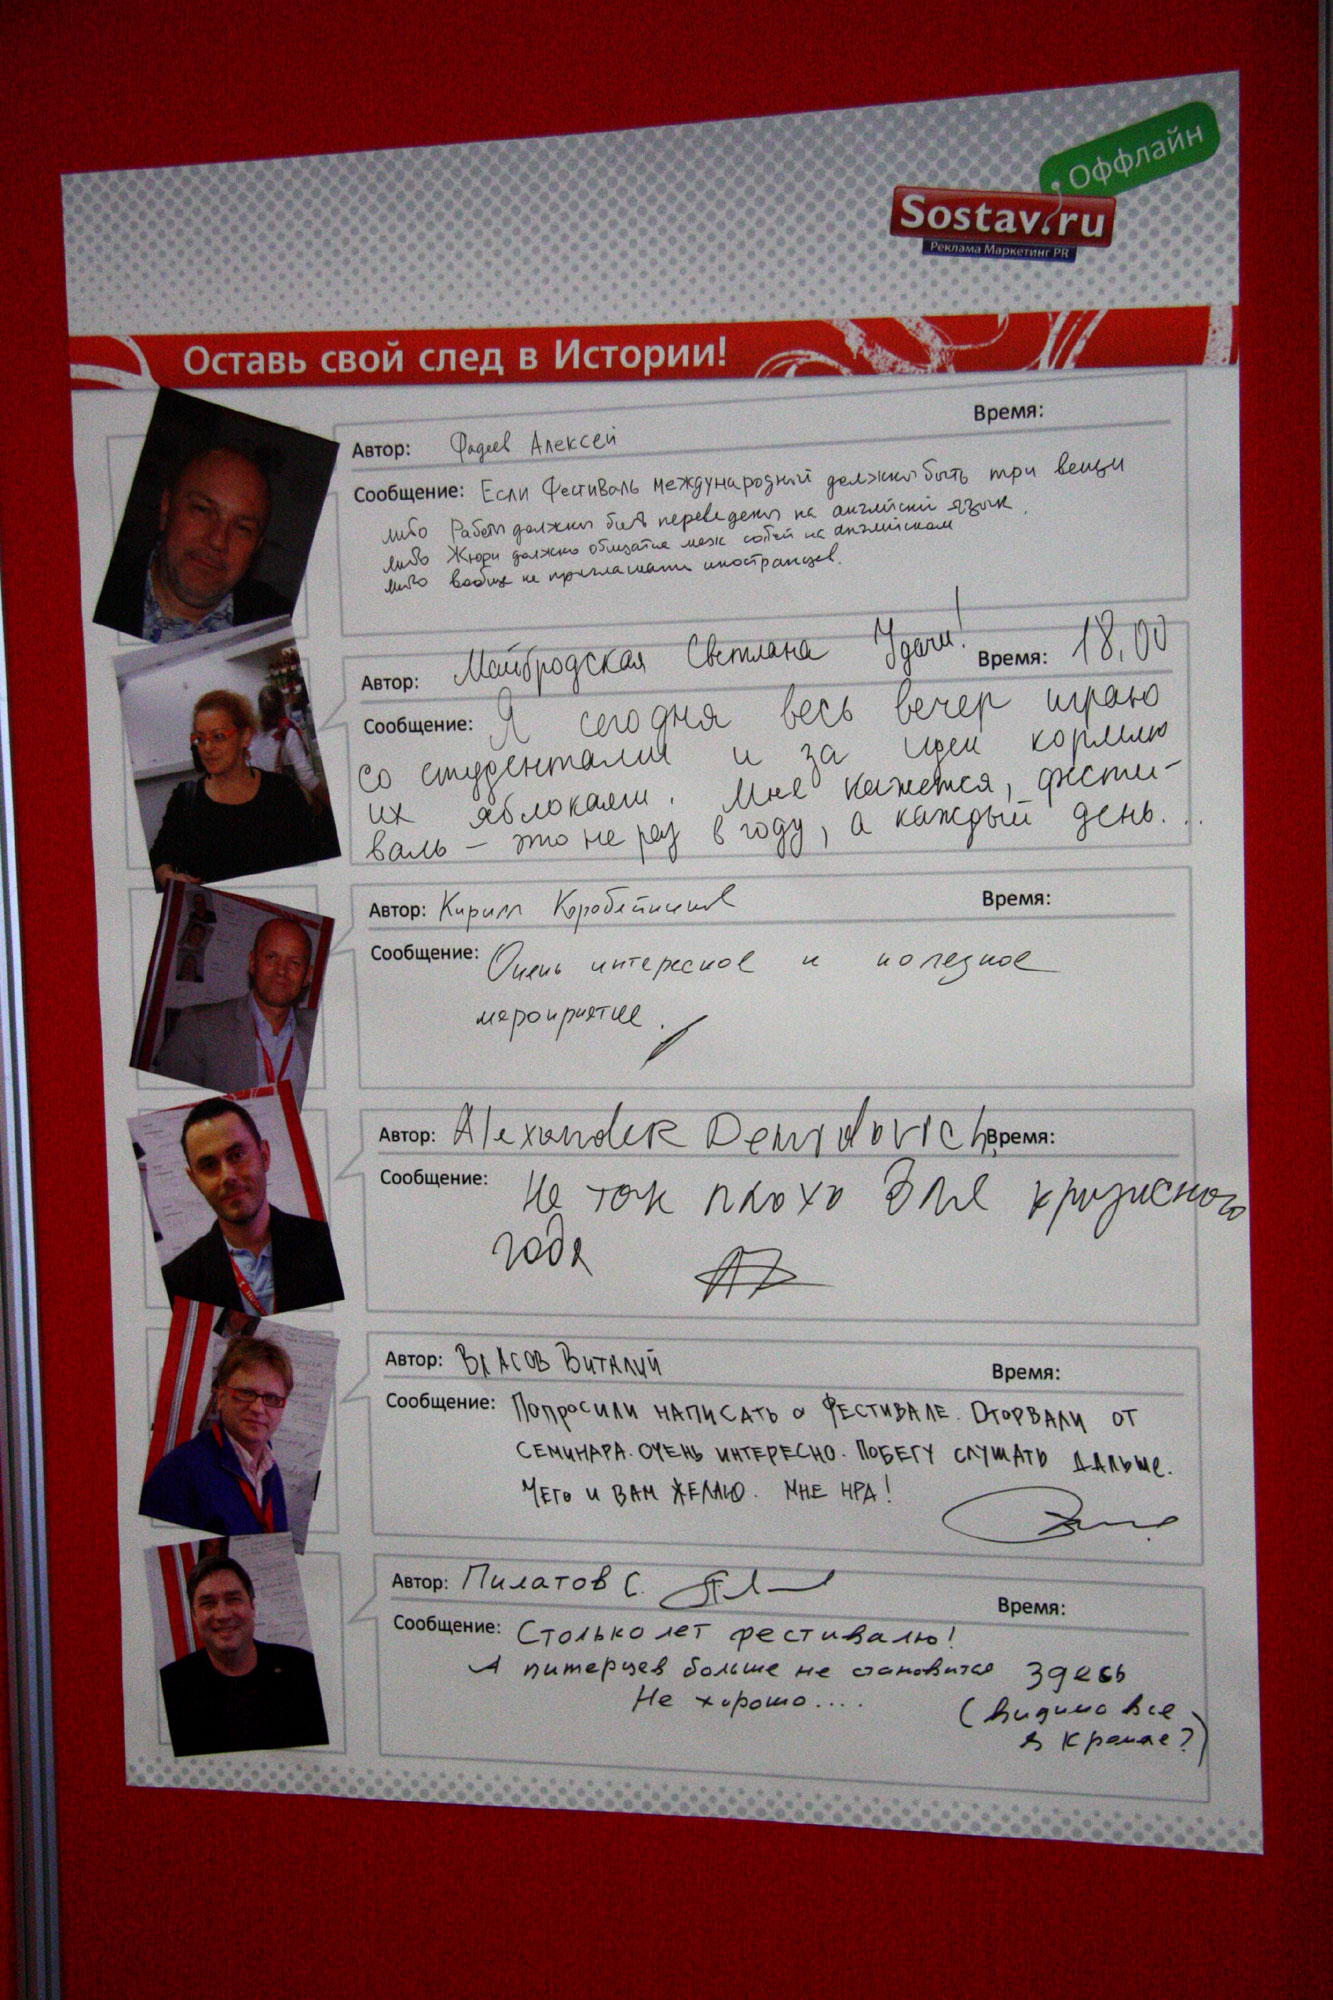 Оффлайн
Sostav.ru
Реклама Маркетинг PR
Оставь свой след в Истории!
Время:
Автор: Фадеев Алексей
Сообщение: Если Фестиваль международный должны быть три вещи
либо Работы должны быть переведены на английский язык.
либо Жюри должно общатся меж собой на английском
либо вообще не приглашать иностранцев.
Автор: Майбродская Светлана Удачи! Время: 18,00
Сообщение: Я сегодня весь вечер играю
со студентами и за идеи кормлю
их яблоками. Мне кажется, фести-
валь – это не раз в году, а каждый день...
Автор: Кирилл Время:
Сообщение: Очень интересное и полезное
мероприятие.
Автор: Alexander Demidovich Время:
Сообщение: Не так плохо для кризисного
года
Автор: Власов Виталий Время:
Сообщение: Попросили написать о фестивале. Оторвали от
семинара. Очень интересно. Побегу слушать дальше.
Чего и вам желаю. Мне нра!
Автор: Пилатов С. Время:
Сообщение: Столько лет фестивалю!
А питерцев больше не становится здесь
Не хорошо.... (видимо все
в Кремле?)